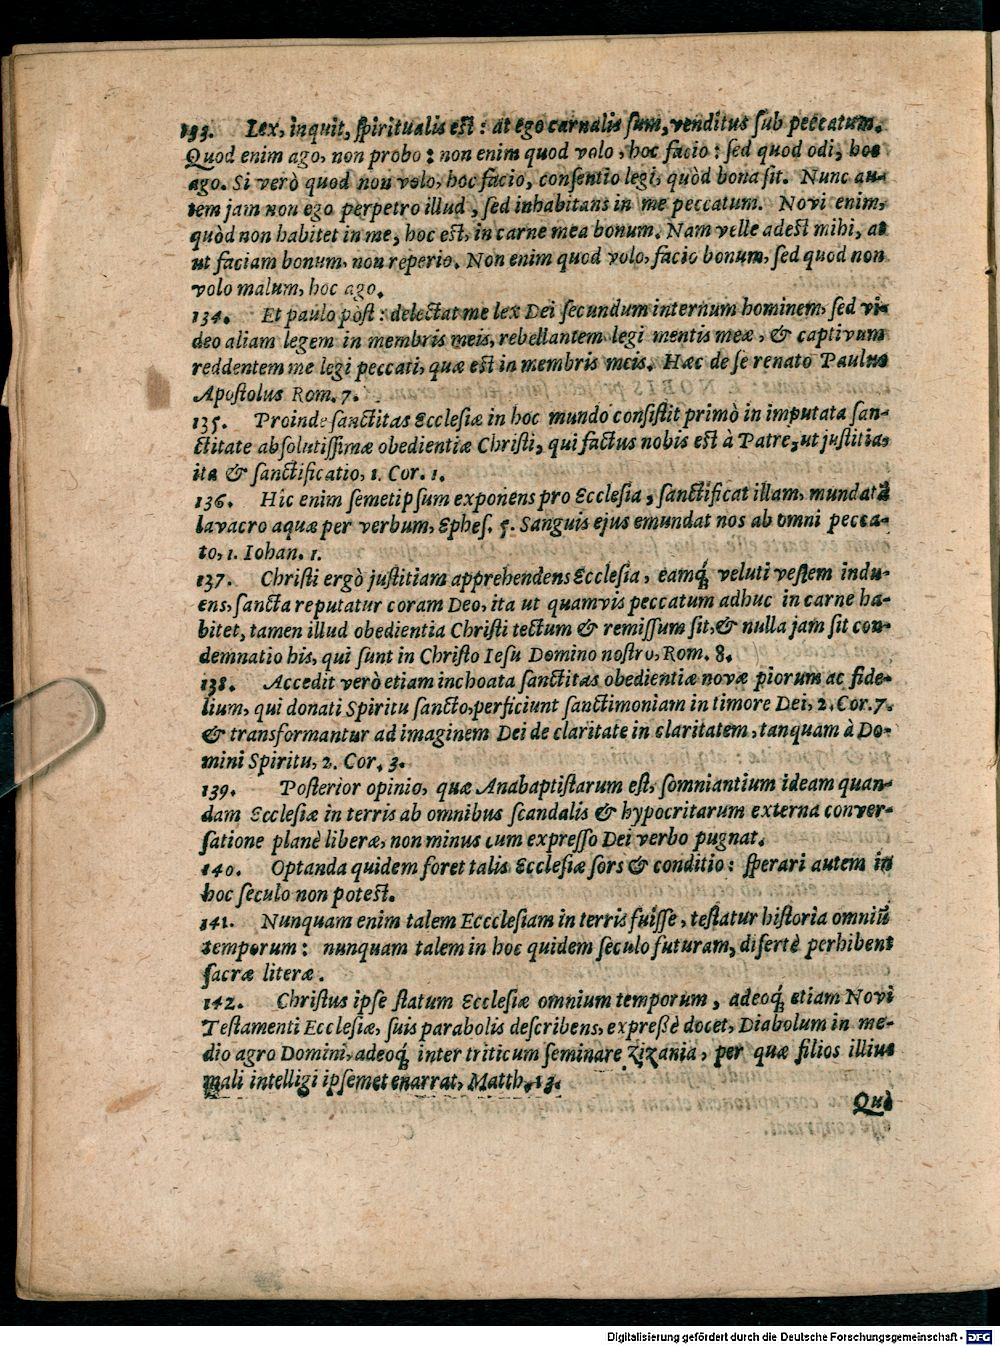 133. Lex, inquit, ſpiritualis eſt: at ego carnalis ſum, venditus ſub peccatum.
Quod enim ago, non probo: non enim quod volo, hoc facio: ſed quod odi, hoc
ago. Si verò quod non volo, hoc facio, conſentio legi, quòd bona ſit. Nunc au-
tem jam non ego perpetro illud, ſed inhabitans in me peccatum. Novi enim,
quòd non habitet in me, hoc eſt, in carne mea bonum. Nam velle adeſt mihi, at
ut faciam bonum, non reperio. Non enim quod volo, facio bonum, ſed quod non
volo malum, hoc ago.
134. Et paulo pòſt: delectat me lex Dei ſecundum internum hominem, ſed vi-
deo aliam legem in membris meis, rebellantem legi mentis meæ, & captivum
reddentem me legi peccati, quæ eſt in membris meis. Hæc de ſe renato Paulus
Apoſtolus Rom. 7.
135. Proinde ſanctitas Eccleſiæ in hoc mundo conſiſtit primò in imputata ſan-
ctitate abſolutiſſimæ obedientiæ Chriſti, qui factus nobis eſt à Patre, ut juſtitia,
ita & ſanctificatio, 1. Cor. 1.
136. Hic enim ſemetipſum exponens pro Eccleſia, ſanctificat illam, mundatã
lavacro aquæ per verbum, Epheſ. 5. Sanguis ejus emundat nos ab omni pecca-
to, 1. Iohan. 1.
137. Chriſti ergò juſtitiam apprehendens Eccleſia, eamq́; veluti veſtem indu-
ens, ſancta reputatur coram Deo, ita ut quamvis peccatum adhuc in carne ha-
bitet, tamen illud obedientia Chriſti tectum & remiſſum ſit, & nulla jam ſit con-
demnatio his, qui ſunt in Chriſto Ieſu Domino noſtro, Rom. 8.
138. Accedit verò etiam inchoata ſanctitas obedientiæ novæ piorum ac fide-
lium, qui donati Spiritu ſancto, perficiunt ſanctimoniam in timore Dei, 2. Cor. 7.
& transformantur ad imaginem Dei de claritate in claritatem, tanquam à Do-
mini Spiritu, 2. Cor. 3.
139. Poſterior opinio, quæ Anabaptiſtarum eſt, ſomniantium ideam quan-
dam Eccleſiæ in terris ab omnibus ſcandalis & hypocritarum externa conver-
ſatione planè liberæ, non minus cum expreſſo Dei verbo pugnat.
140. Optanda quidem foret talis Eccleſiæ ſors & conditio: ſperari autem in
hoc ſeculo non poteſt.
141. Nunquam enim talem Eccclesiam in terris fuiſſe, teſtatur hiſtoria omniũ
temporum: nunquam talem in hoc quidem ſeculo futuram, diſertè perhibent
ſacræ literæ.
142. Chriſtus ipſe ſtatum Eccleſiæ omnium temporum, adeoq́; etiam Novi
Teſtamenti Eccleſiæ, ſuis parabolis deſcribens, expreßè docet, Diabolum in me-
dio agro Domini, adeoq́; inter triticum ſeminare zizania, per quæ filios illius
mali intelligi ipſemet enarrat, Matth. 13.
Quò
Digitalisierung gefördert durch die Deutsche Forschungsgemeinschaft - DFG